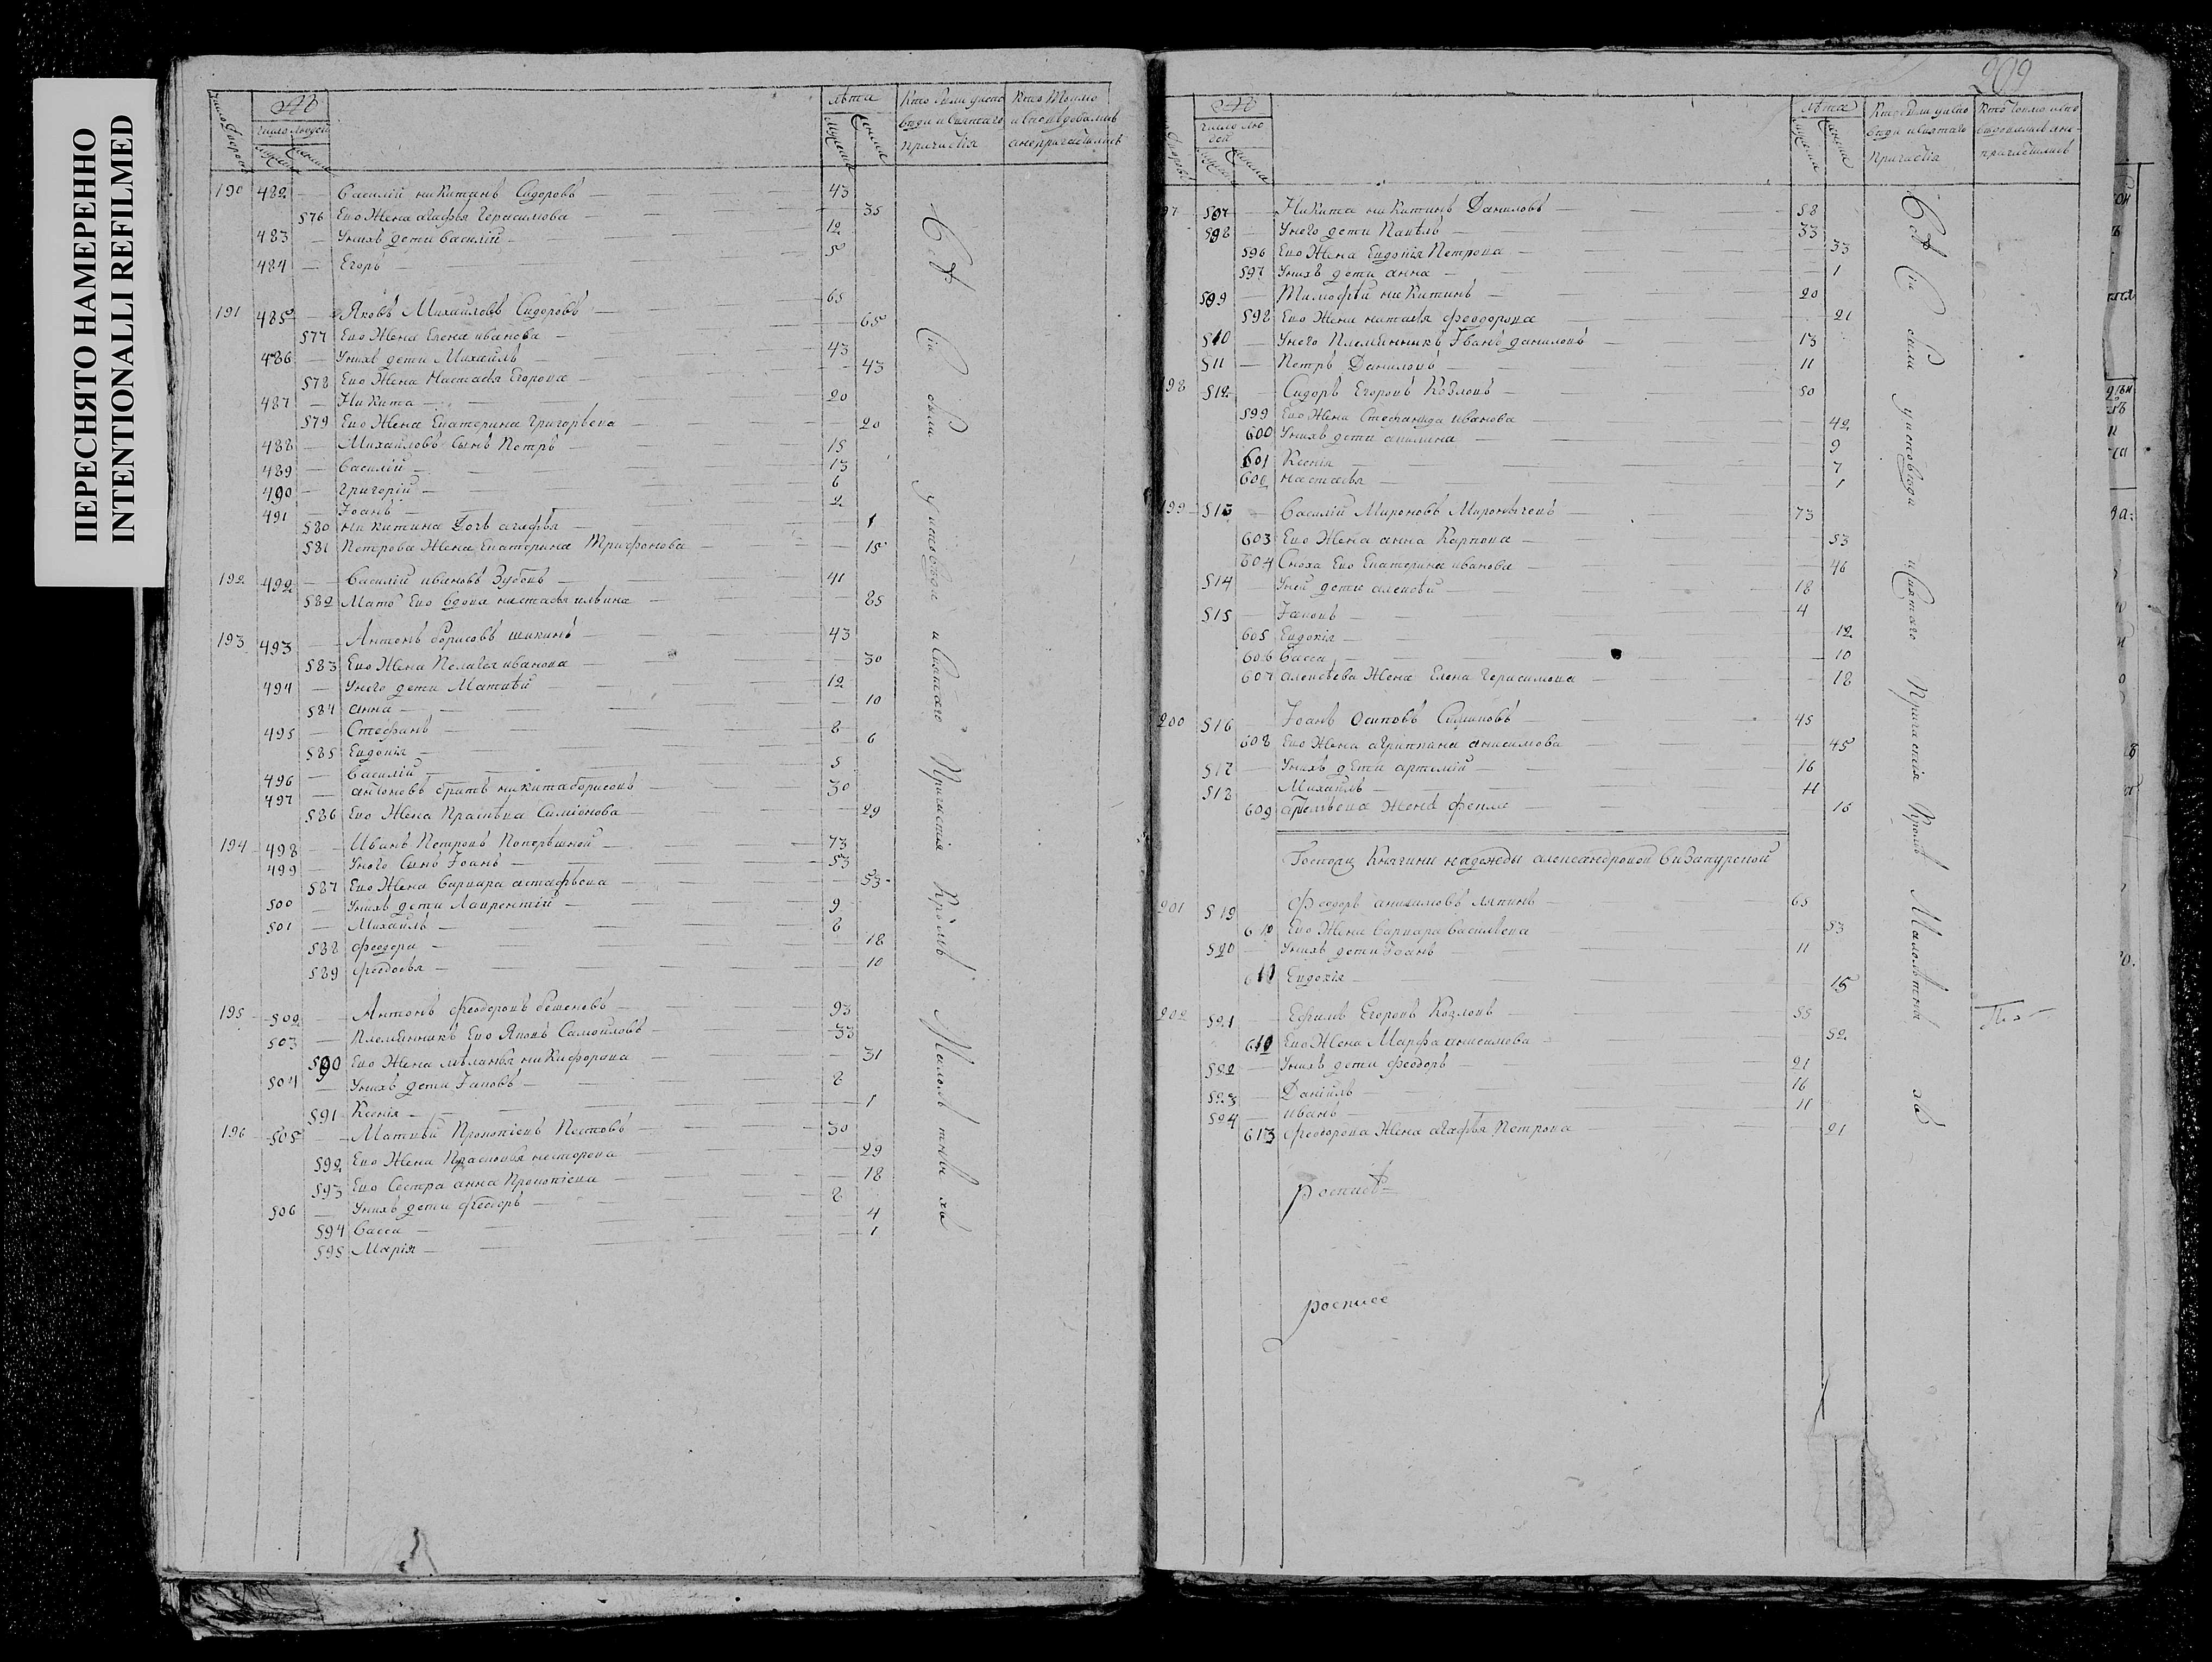 ПЕРЕСНЯТО НАМЕРЕННО
INTENTIONALLI REFILMED
число дворовъ
число людей
мужеска
женска
лѣта
мужеска
женска
Кто были у исповѣди и Святаго Причастія
Кто токмо исповѣдовались а непричастились
190 482 Василій никитинъ Сидоровъ 43
576 Ево Жена агафья Герасимова 35
483 У нихъ дети Василій 12
484 Егоръ 5
191 485 Яковъ Михайловъ Сидоровъ 65
577 Ево Жена Елена иванова 65
486 У нихъ дети Михайлъ 43
578 Ево Жена Настасья Егорова 43
487 Никита 20
579 Ево Жена Екатерина Григорьева 20
488 Михайловъ Сынъ Петръ 15
489 Василій 13
490 Григорій 6
491 Іоанъ 2
580 никитина Дочь агафья 1
581 Петрова Жена Екатерина Трифонова 15
192 492 Василій ивановъ Зубовъ 41
582 Мать Ево вдова настасья ильина 85
193 493 Антонъ борисовъ шикинъ 43
583 Ево Жена Пелагея иванова 30
494 У него дети Матвѣй 12
584 анна 10
495 Стефанъ 8
585 Евдокія 6
496 Василій 5
497 антоновъ братъ никита борисовъ 30
586 Ево Жена Прасковья Симіонова 29
194 498 Иванъ Петровъ 73
499 У него Сынъ Іоанъ 53
587 Ево Жена варвара астафьева 53
500 У нихъ дети Лаврентій 9
501 Михайлъ 8
588 феодора 18
589 феодосья 10
195 502 Антонъ феодоровъ 93
503 Племянникъ Ево Яковъ Самойловъ 33
590 Ево Жена мѣланья никифорова 31
504 У нихъ дети Іаковъ 8
591 Ксенія 1
196 505 Матвѣй Прокопіевъ Пестовъ 30
592 Ево Жена Прасковья несторова 29
593 Ево Сестра анна Прокопіева 18
506 У нихъ дети феодоръ 8
594 Васса 4
595 Марія 1
Всѣ Сіи были у исповѣди и Святаго Причастія Кромѣ Малолѣтныхъ
209
число людей
мужеска
женска
лѣта
мужеска
женска
Кто были у исповѣди и Святаго Причастія
97 507 Никита никитинъ Даниловъ 58
508 У него дети Павелъ 33
596 Ево Жена Евдокія Петрова 33
597 У нихъ дети анна 1
509 Тимофѣй никитинъ 20
598 Ево Жена наталья феодорова 21
510 У него Племянникъ Іванъ даниловъ 13
511 Петръ Даниловъ 11
198 512 Сидоръ Егоровъ Козловъ 50
599 Ево Жена Стефанида иванова 42
600 У нихъ дети акилина 9
601 Ксенія 7
602 настасья 1
199 513 Василій Мироновъ Мироничевъ 73
603 Ево Жена анна Карпова 53
604 Сноха Ево Екатерина иванова 46
514 У ней дети алексѣй 18
515 Іаковъ 4
605 Евдокія 12
606 Васса 10
607 алексѣева Жена Елена Герасимова 18
200 516 Іоанъ Осиповъ 45
608 Ево Жена агрипина анисимова 45
517 У нихъ дети артемій 16
518 Михайлъ 11
609 артемьева Жена фекла 16
Госпожи Княгини надежды александровой
201 519 Феодоръ анисимовъ ляпинъ 65
610 Ево Жена варвара васильева 53
520 У нихъ дети Іоанъ 11
611 Евдокія 15
202 521 Ефимъ Егоровъ Козловъ 55
612 Ево Жена Марфа анисимова 52
522 У нихъ дети феодоръ 21
523 Даніилъ 16
524 иванъ 11
613 феодорова Жена агафья Петрова 21
Всѣ Сіи были у исповѣди и Святаго Причастія Кромѣ Малолѣтныхъ
роспись
росписе